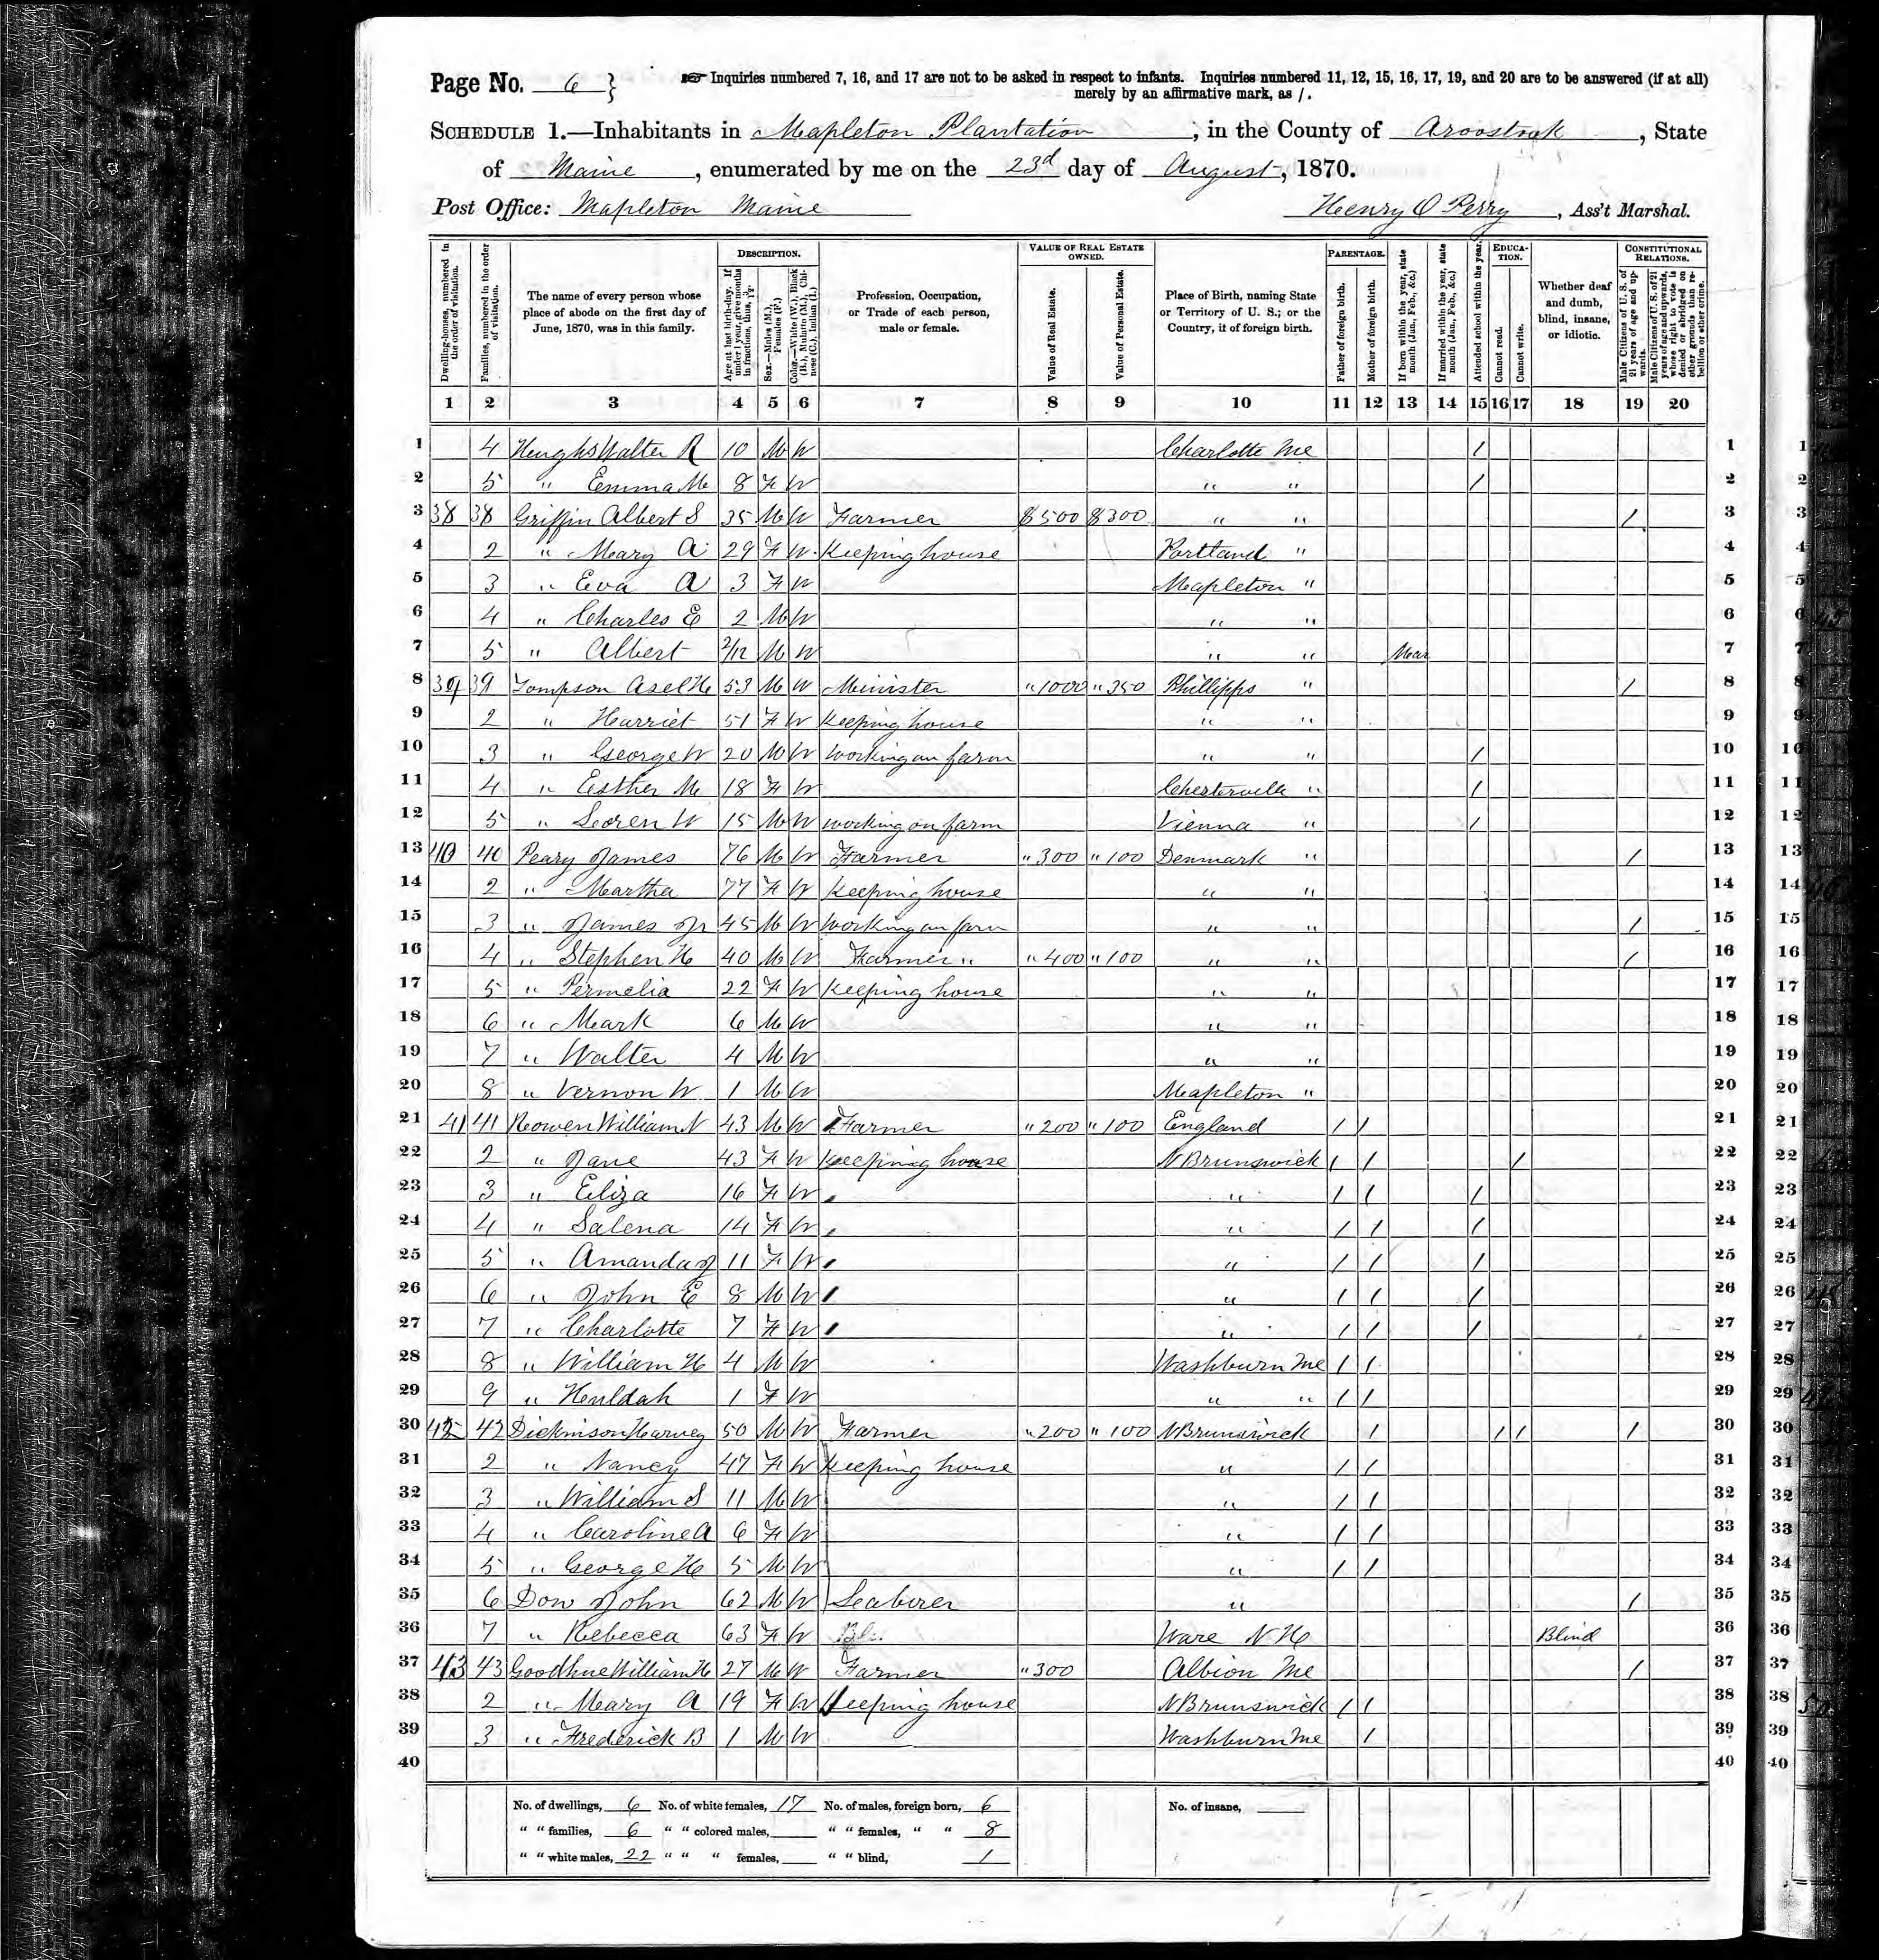 Page No. 6 } Inquiries numbered 7, 16, and 17 are not to be asked in respect to infants. Inquiries numbered 11, 12, 15, 16, 17, 19, and 20 are to be answered (if at all)
merely by an affirmative mark, as /.
SCHEDULE 1.—Inhabitants in Mapleton Plantation, in the County of Aroostook, State
of Maine, enumerated by me on the 23d day of August, 1870.
Post Office: Mapleton Maine Henry O Perry, Ass't Marshal.
Dwelling-houses, numbered in the order of visitation.
Families, numbered in the order of visitation.
The name of every person whose place of abode on the first day of June, 1870, was in this family.
DESCRIPTION.
Age at last birth-day. If under 1 year, give months in fractions, thus, 3/12
Sex.—Males (M.), Females (F.)
Color.—White (W.), Black (B.), Mulatto (M.), Chinese (C.), Indian (I.)
Profession, Occupation, or Trade of each person, male or female.
VALUE OF REAL ESTATE OWNED.
Value of Real Estate.
Value of Personal Estate.
Place of Birth, naming State or Territory of U. S.; or the Country, if of foreign birth.
PARENTAGE.
Father of foreign birth.
Mother of foreign birth.
If born within the year, state month (Jan., Feb., &c.)
If married within the year, state month (Jan., Feb., &c.)
Attended school within the year.
EDUCATION.
Cannot read.
Cannot write.
Whether deaf and dumb, blind, insane, or idiotic.
CONSTITUTIONAL RELATIONS.
Male Citizens of U. S. of 21 years of age and upwards.
Male Citizens of U. S. of 21 years of age and upwards, whose right to vote is denied or abridged on other grounds than rebellion or other crime.
1 2 3 4 5 6 7 8 9 10 11 12 13 14 15 16 17 18 19 20
1 4 Hughs Walter R 10 M W Charlotte Me / 1
2 5 " Emma M 8 F W " " / 2
3 38 38 Griffin Albert S 35 M W Farmer $500 $300 " " / 3
4 2 " Mary A 29 F W Keeping house Portland " 4
5 3 " Eva A 3 F W Mapleton " 5
6 4 " Charles E 2 M W " " 6
7 5 " Albert 2/12 M W " " Mar 7
8 39 39 Tompson Asel H 53 M W Minister " 1000 " 350 Phillipps " / 8
9 2 " Harriet 51 F W Keeping house " " 9
10 3 " George W 20 M W Working on farm " " / 10
11 4 " Esther M 18 F W Chesterville " / 11
12 5 " Loren W 15 M W working on farm Vienna " / 12
13 40 40 Peary James 76 M W Farmer " 300 " 100 Denmark " / 13
14 2 " Martha 77 F W Keeping house " " 14
15 3 " James Jr 45 M W Working on farm " " / 15
16 4 " Stephen H 40 M W Farmer " " 400 " 100 " " / 16
17 5 " Permelia 22 F W Keeping house " " 17
18 6 " Mark 6 M W " " 18
19 7 " Walter 4 M W " " 19
20 8 " Vernon W 1 M W Mapleton " 20
21 41 41 Rowen William N 43 M W Farmer " 200 " 100 England / / 21
22 2 " Jane 43 F W Keeping house N Brunswick / / / 22
23 3 " Eliza 16 F W " / / / 23
24 4 " Salena 14 F W " / / / 24
25 5 " Amanda J 11 F W " / / / 25
26 6 " John E 8 M W " / / / 26
27 7 " Charlotte 7 F W " / / / 27
28 8 " William H 4 M W Washburn Me / / 28
29 9 " Huldah 1 F W " " / / 29
30 42 42 Dickinson Harvey 50 M W Farmer " 200 " 100 N Brunswick / / / / 30
31 2 " Nancy 47 F W Keeping house " / / 31
32 3 " William S 11 M W " / / 32
33 4 " Caroline A 6 F W " / / 33
34 5 " George H 5 M W " / / 34
35 6 Dow John 62 M W Leaborer " / 35
36 7 " Rebecca 63 F W Ware N H Blind 36
37 43 43 Goodhue William H 27 M W Farmer " 300 Albion Me / 37
38 2 " Mary A 19 F W Keeping house N Brunswick / / 38
39 3 " Frederick B 1 M W Washburn Me / 39
40 40
No. of dwellings, 6 No. of white females, 17 No. of males, foreign born, 6 No. of insane,
" " families, 6 " " colored males, " " females, " " 8
" " white males, 22 " " " females, " " blind, 1